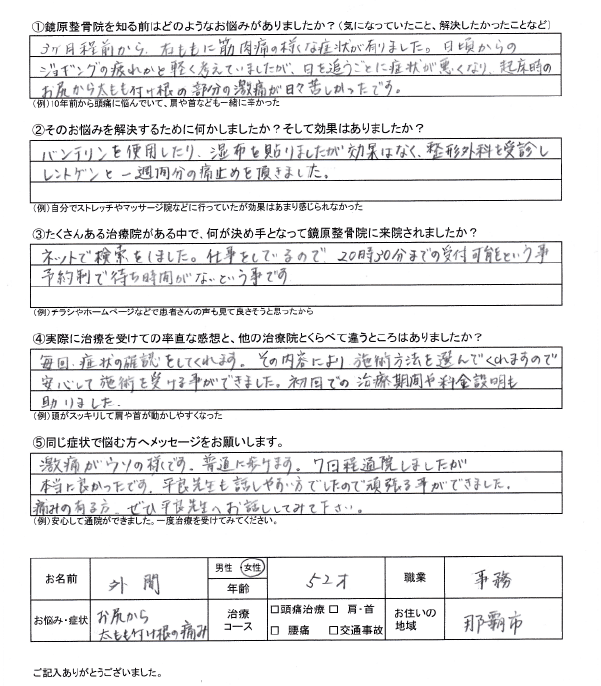 ①鏡原整骨院を知る前はどのようなお悩みがありましたか？(気になっていたこと、解決したかったことなど)
3ヶ月程前から、右ももに筋肉痛の様な症状が有りました。日頃からの
ジョギングの疲れかと軽く考えていましたが、日を追うごとに症状が悪くなり、起床時の
お尻から太もも付け根の部分の激痛が日々苦しかったです。
(例)10年前から頭痛に悩んでいて、肩や首なども一緒に辛かった
②そのお悩みを解決するために何かしましたか？そして効果はありましたか？
バンテリンを使用したり、湿布を貼りましたが効果はなく、整形外科を受診し
レントゲンと一週間分の痛止めを頂きました。
(例)自分でストレッチやマッサージ院などに行っていたが効果はあまり感じられなかった
③たくさんある治療院がある中で、何が決め手となって鏡原整骨院に来院されましたか？
ネットで検索をしました。仕事をしているので、20時30分までの受付可能という事
予約制で待ち時間がないという事です
(例)チラシやホームページなどで患者さんの声も見て良さそうと思ったから
④実際に治療を受けての率直な感想と、他の治療院とくらべて違うところはありましたか？
毎回、症状の確認をしてくれます。その内容により施術方法を選んでくれますので
安心して施術を受ける事ができました。初回での治療期間や料金説明も
助りました.
(例)頭がスッキリして肩や首が動かしやすくなった
⑤同じ症状で悩む方へメッセージをお願いします。
激痛がウソの様です。普通に歩けます。7回程通院しましたが
本当に良かったです。平良先生も話しやすい方でしたので頑張る事ができました。
痛みの有る方、ぜひ平良先生へお話ししてみて下さい。
(例)安心して通院ができました。一度治療を受けてみてください。
お名前 外間 男性 女性 年齢 52才 職業 事務
お悩み・症状 お尻から 太もも付け根の痛み 治療コース □頭痛治療 □肩・首 □腰痛 □交通事故 お住いの地域 那覇市
ご記入ありがとうございました。